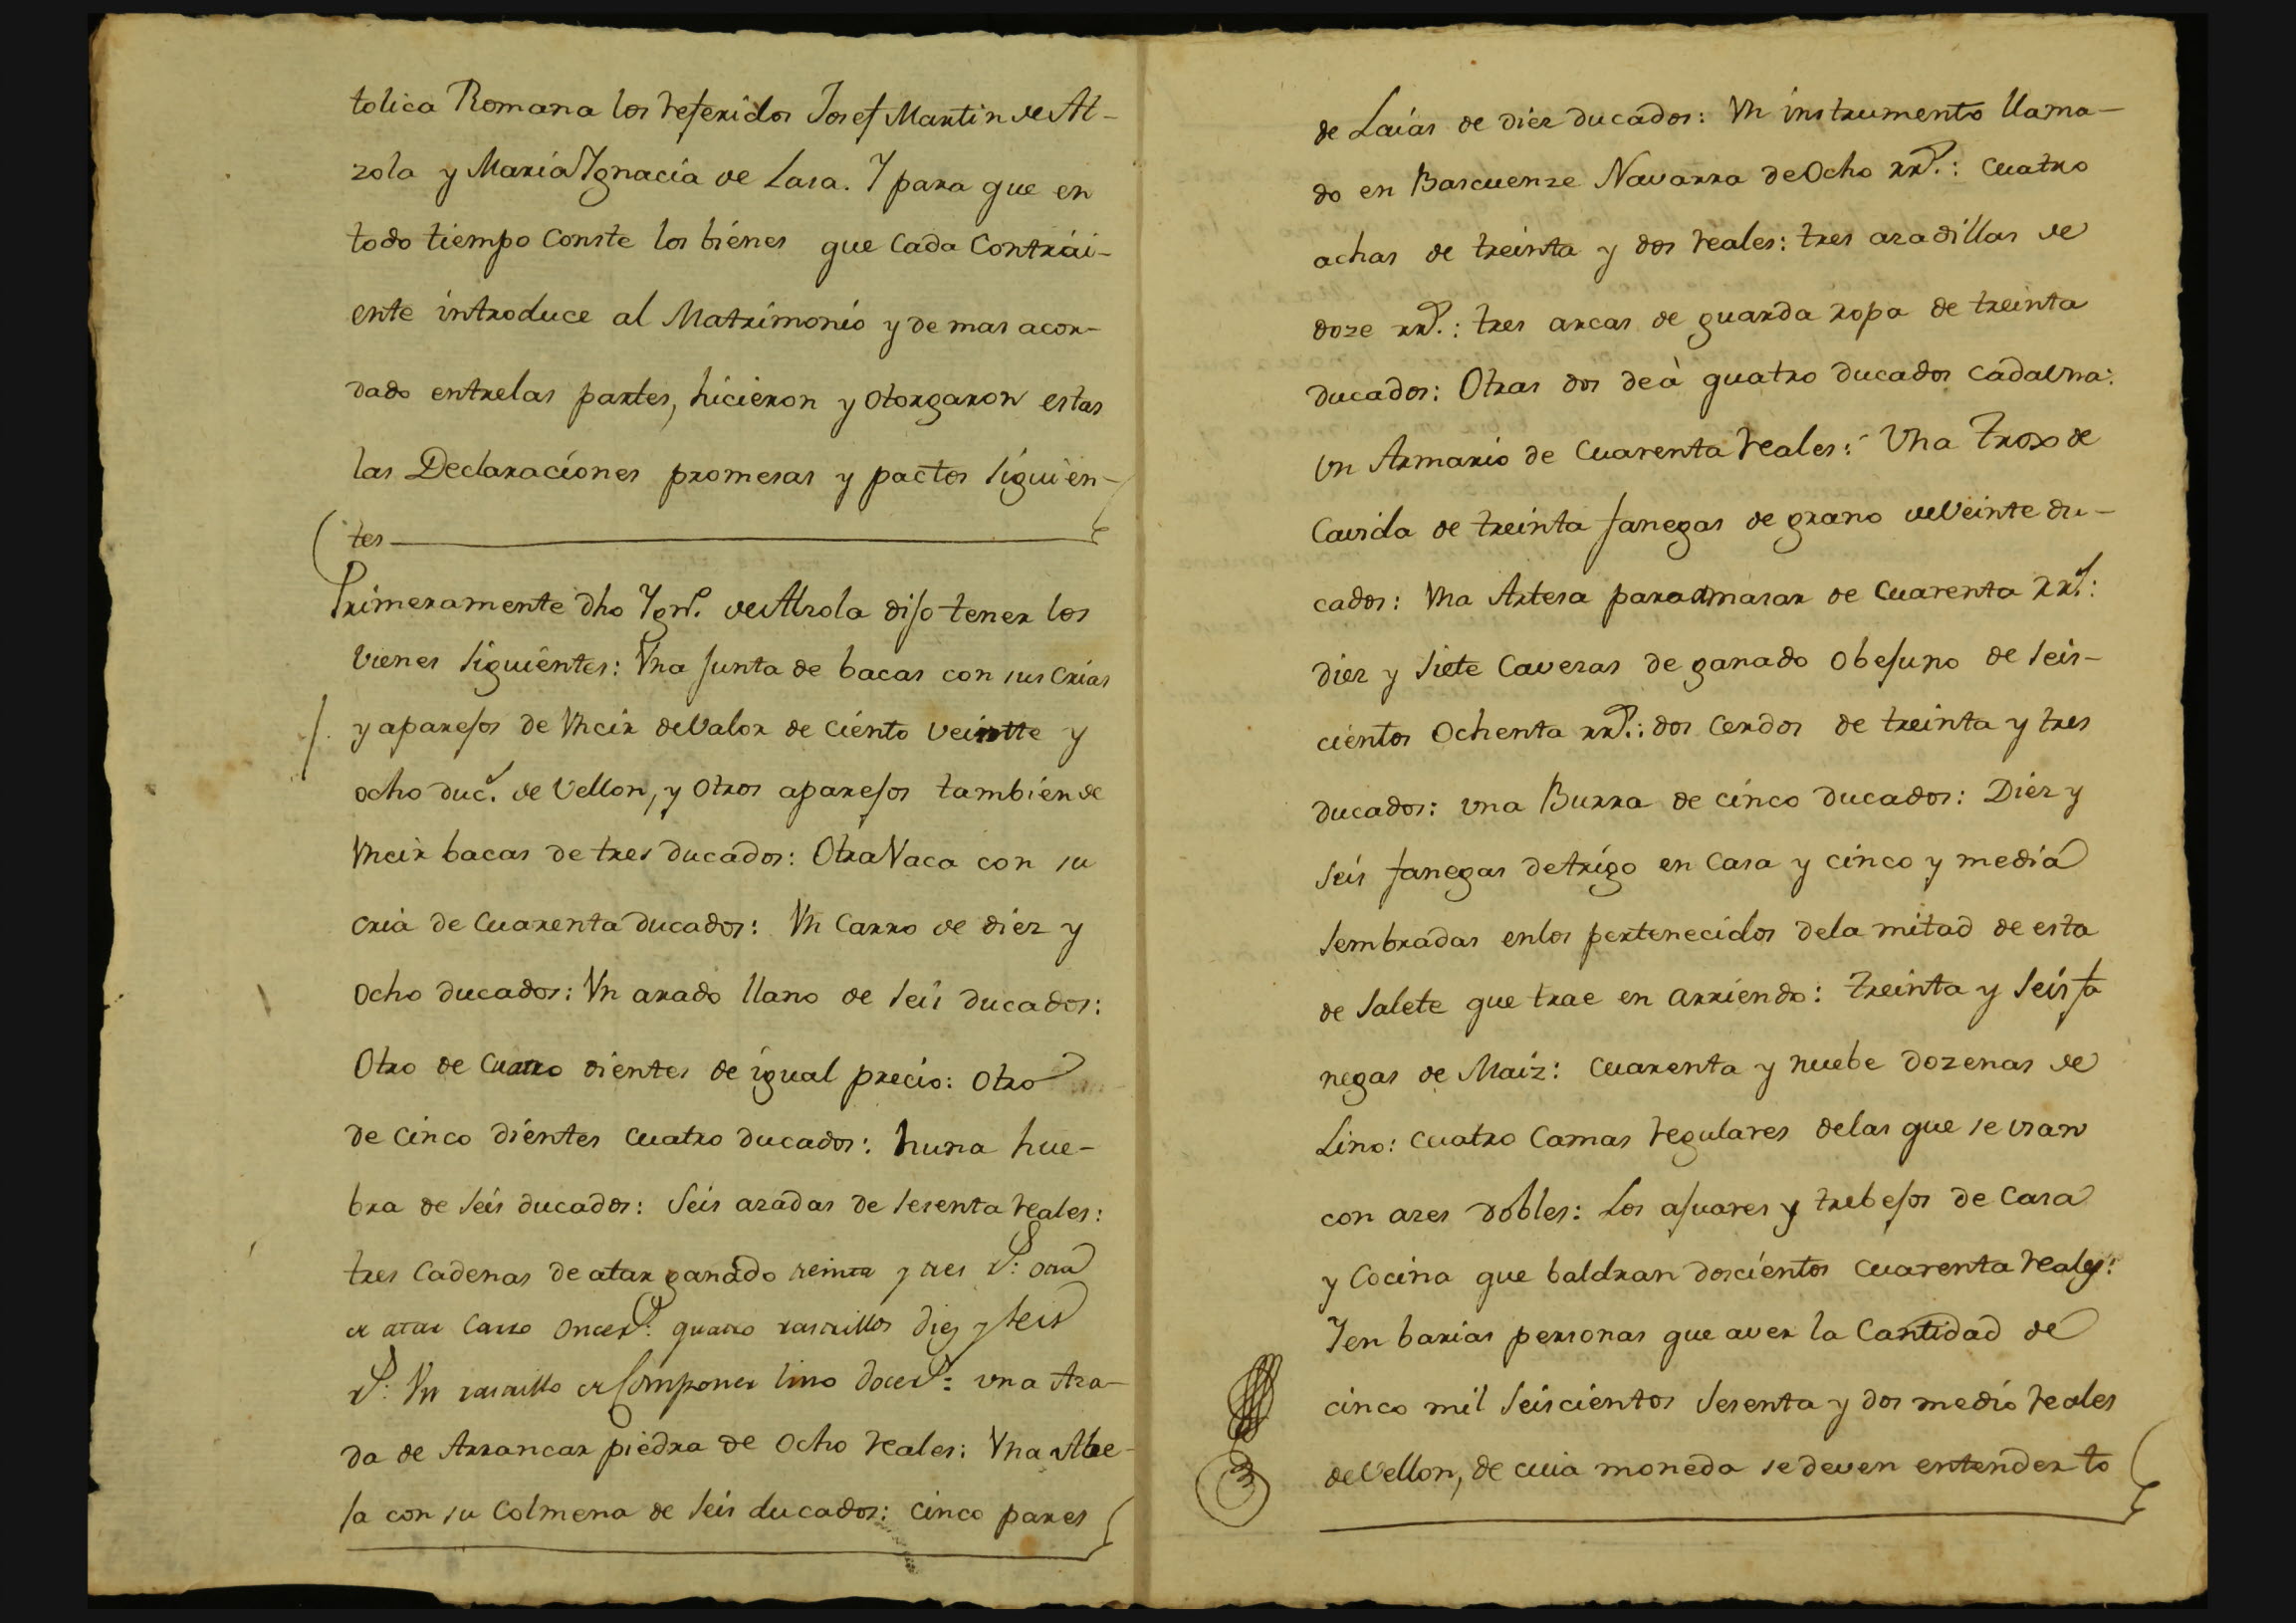 tolica Romana los referidos Josef Martin de Al-
zola y Maria Ygnacia de Lasa. Y para que en
todo tiempo Conste los bienes que Cada Contrai-
ente introduce al Matrimonio y de mas acor-
dado entrelas partes, hicieron y Otorgaron estas
las Declaraciones promesas y pactos siguien-
tes
Primeramente dho Ygn.º de Alzola dijo tener los
vienes siguientes: Vna junta de bacas con sus Crias
y aparejos de Vncir de Valor de Ciento veintte y
ocho duc.s de Vellon, y Otros aparejos tambien de
Vncir bacas de tres ducados: Otra Vaca con su
cria de Cuarenta ducados: Vn Carro de diez y
Ocho ducados: Vn arado llano de seis ducados:
Otro de Cuatro dientes de igual precio: Otro
de Cinco dientes Cuatro ducados: huna hue-
bra de seis ducados: seis azadas de sesenta reales:
tres Cadenas de atar ganado treinta y tres r.s: otra
de atar Carro Once r.s: quatro rastrillos diez y seis
r.s: Vn rastrillo de Componer lino doce r.s: vna Aza-
da de Arrancar piedra de Ocho reales: Vna Abe-
ja con su Colmena de seis ducados: Cinco pares
de Laias de diez ducados: Vn instrumento llama-
do en Bascuenze Navarra de Ocho rr.s: Cuatro
achas de treinta y dos reales: tres azadillas de
doze rr.s: tres arcas de guarda ropa de treinta
ducados: Otras dos de à quatro ducados cada vna:
vn Armario de Cuarenta reales: Vna Trox de
Cavida de treinta fanegas de grano de Veinte du-
cados: Vna Artesa para amasar de Cuarenta rr.s:
diez y siete Cavezas de ganado Obejuno de seis-
cientos Ochenta rr.s: dos Cerdos de treinta y tres
ducados: vna Burra de cinco ducados: Diez y
seis fanegas de trigo en Casa y cinco y media
sembradas enlos pertenecidos dela mitad de esta
de Salete que trae en arriendo: treinta y seis fa
negas de Maiz: Cuarenta y nuebe dozenas de
Lino: Cuatro Camas regulares delas que se vsan
con azes dobles: Los ajuares y trebejos de Casa
y Cocina que baldran doscientos Cuarenta reales:
Yen barias personas que aver la Cantidad de
cinco mil seiscientos sesenta y dos medio reales
de Vellon, de cuia moneda se deven entender to